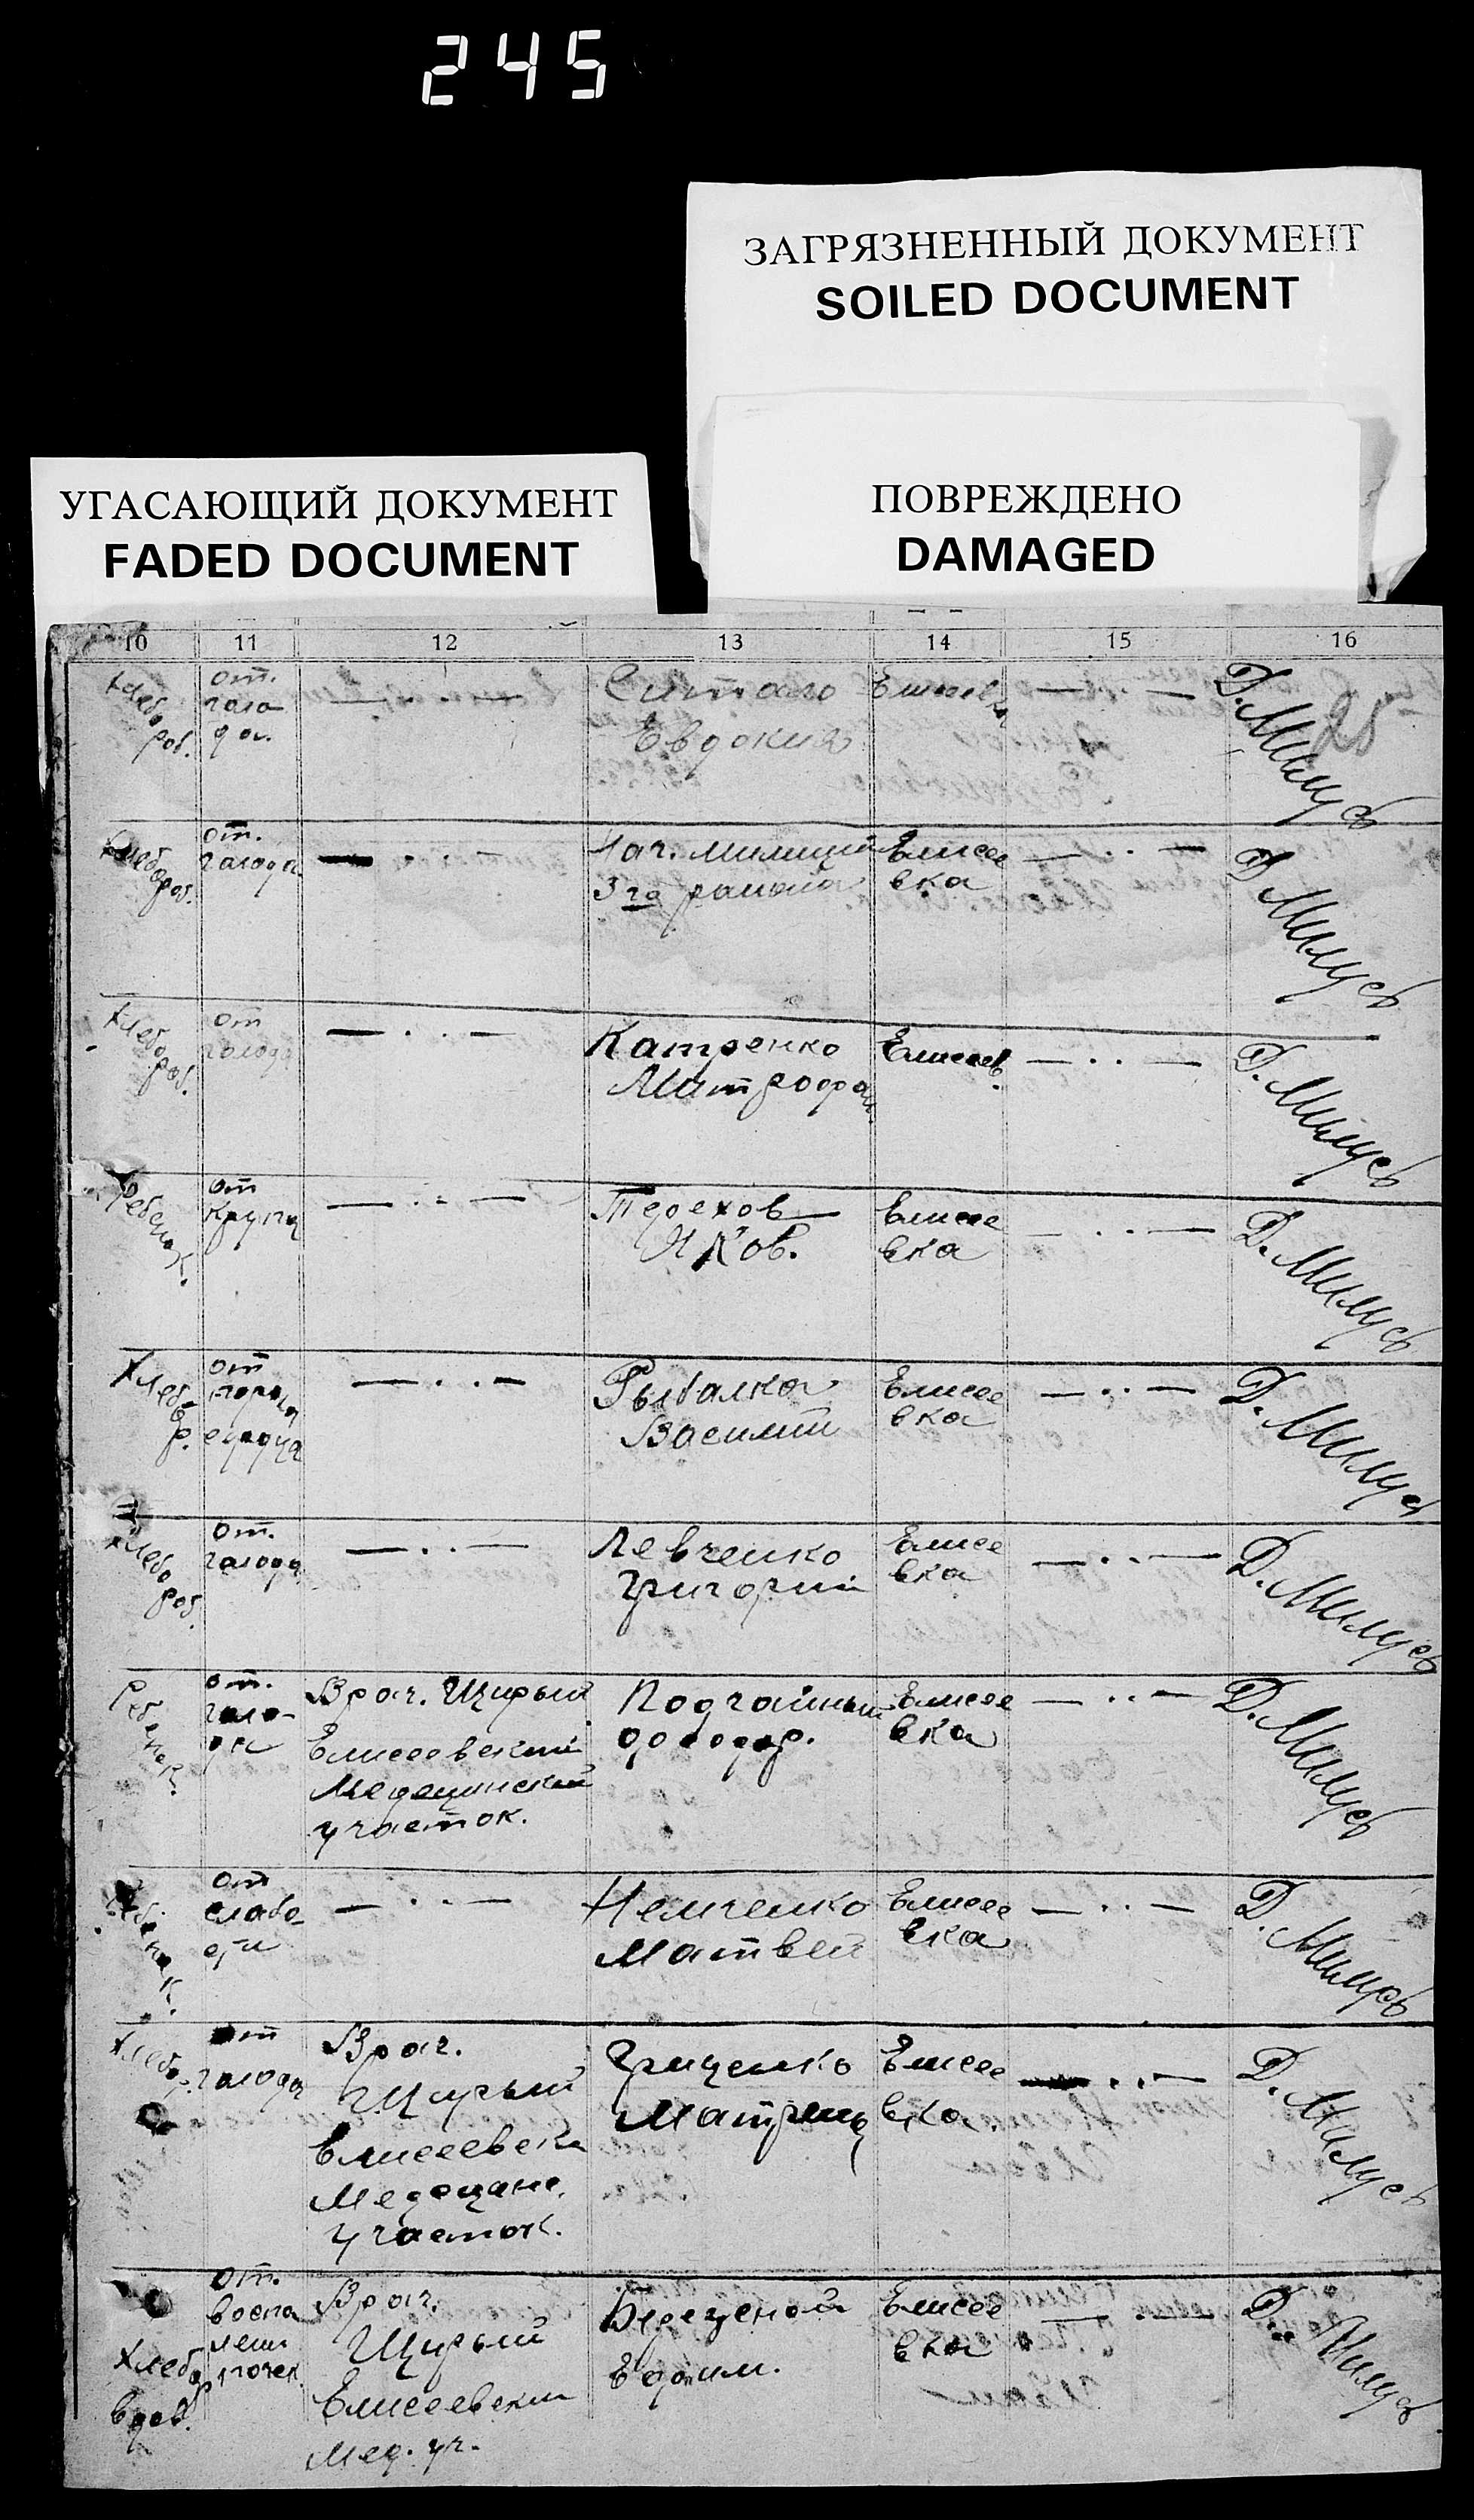 245
ЗАГРЯЗНЕННЫЙ ДОКУМЕНТ
SOILED DOCUMENT
УГАСАЮЩИЙ ДОКУМЕНТ
FADED DOCUMENT
ПОВРЕЖДЕНО
DAMAGED
10 11 12 13 14 15 16
Хлебо
роб.
от.
голо
да.
— · · —
Евдокия
Елисеев
— · · —
Д. Милусь
25
Хлебо
роб.
от.
голода
— · · —
Нач. милиции
3го района
Елисее
вка
— · · —
Д Милусь
Хлебо
роб.
от
голода
— · · —
Катренко
Митрофан
Елисеев.
— · · —
Д. Милусь
Ребенок.
от
крупа
— · · —
Терехов
Яков.
Елисее
вка
— · · —
Д. Милусь
Хлебо
р.
от
порока
сердца
— · · —
Рыбалка
Василий
Елисее
вка
— · · —
Д. Милусь
Хлебо
роб.
от.
голода
— · · —
Левченко
Григорий
Елисе
вка
— · · —
Д. Милусь
Ребенок.
от.
Врач. Щирый
Елисеевский
Медецинский
участок.
Подчайный
Елисее
вка
— · · —
Д. Милусь
от
слабо
сти
— · · —
Немченко
Матвей
Елисее
вка
— · · —
Д. Милусь
Хлебор.
от
голода
Врач.
Щирый
Елисеевск
Медецинс.
участок.
Гриценко
Елисее
вка.
— · · —
Д. Милусь
Хлебор
вдов.
от.
воспа
лени
почек
Врач.
Щирый
Елисеевский
Мед. уч.
Ефим.
Елисее
вка
— · · —
Д. Милусь